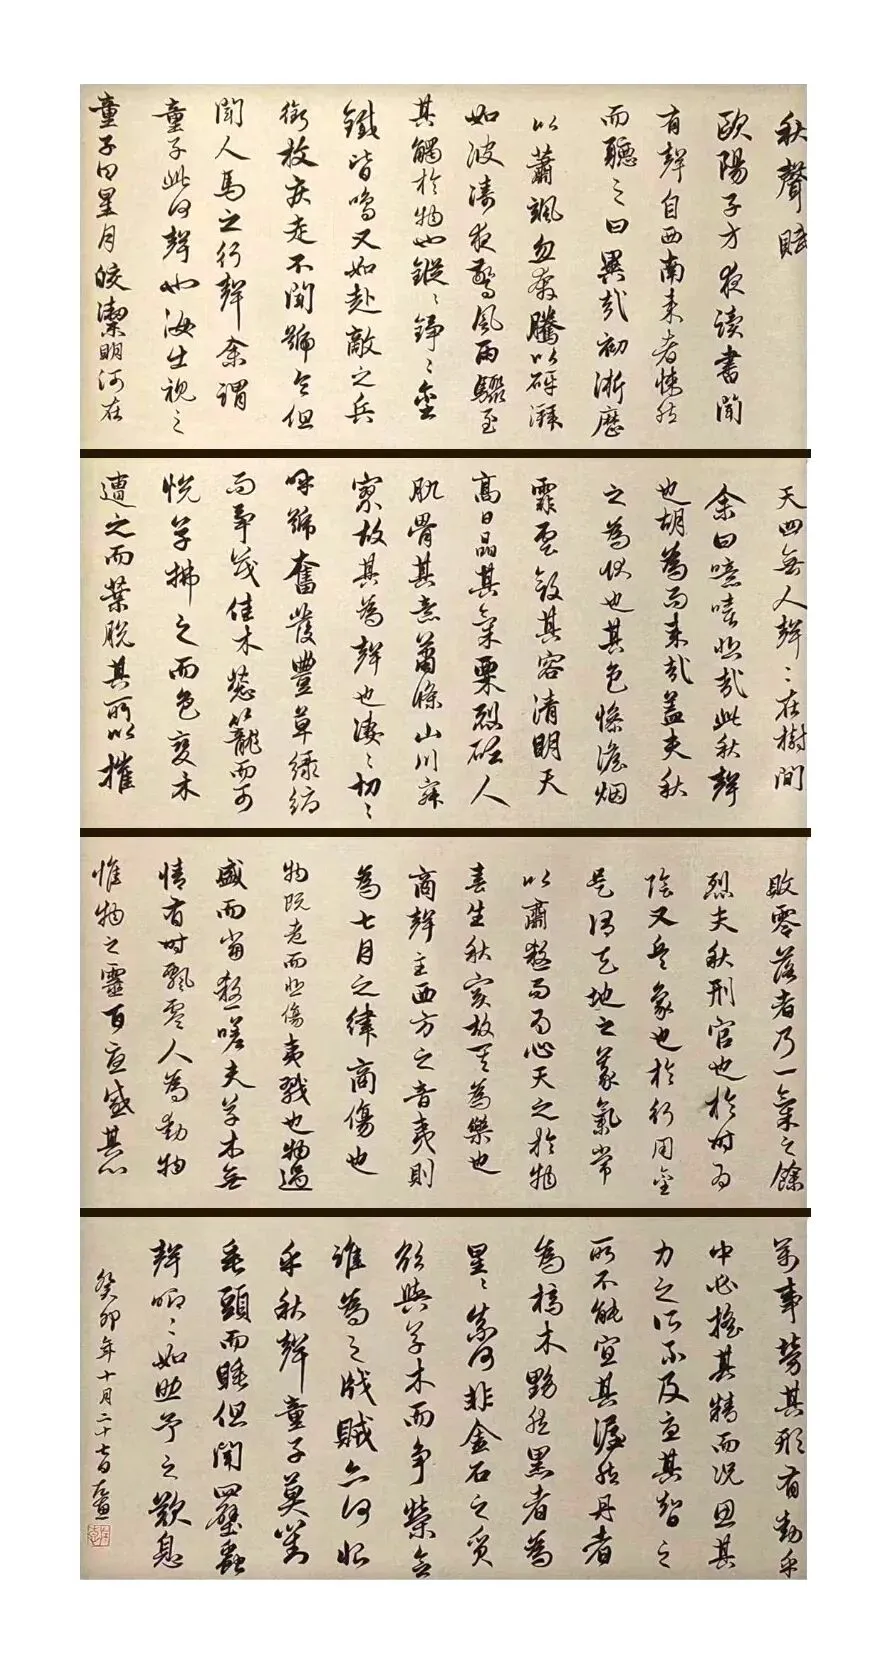 秋聲賦
歐陽子方夜读書聞
有聲自西南来者悚然
而聽之曰異哉初淅瀝
以蕭颯忽奔騰以砰湃
如波濤夜驚風雨驟至
其觸於物也鏦〻錚〻金
鐵皆鳴又如赴敵之兵
銜枚疾走不聞號令但
聞人馬之行聲余謂
童子此何聲也汝出視之
童子曰星月皎潔明河在
天四無人聲〻在樹間
余曰噫嘻悲哉此秋聲
也胡為而来哉蓋夫秋
之為状也其色惨澹烟
霏雲斂其容清明天
高日晶其氣栗烈砭人
肌骨其意蕭條山川寂
寥故其為聲也凄〻切〻
呼號奮發豐草綠縟
而争茂佳木葱籠而可
悦草拂之而色變木
遭之而葉脱其所以摧
敗零落者乃一氣之餘
烈夫秋刑官也於时為
陰又兵象也於行用金
是谓天地之義氣常
以肅殺而为心天之於物
春生秋實故其為樂也
商聲主西方之音夷則
為七月之律商傷也
物既老而悲傷夷戮也物過
盛而當殺嗟夫草木無
情有时飄零人為動物
惟物之靈百憂感其心
萬事勞其形有動乎
中必摇其精而況思其
力之所不及憂其智之
所不能宜其渥然丹者
為槁木黟然黑者為
星〻奈何非金石之質
欲與草木而争榮念
誰為之戕賊亦何恨
乎秋聲童子莫對
垂頭而睡但聞四壁蟲
聲唧〻如助予之歎息
癸卯年十月二十七日